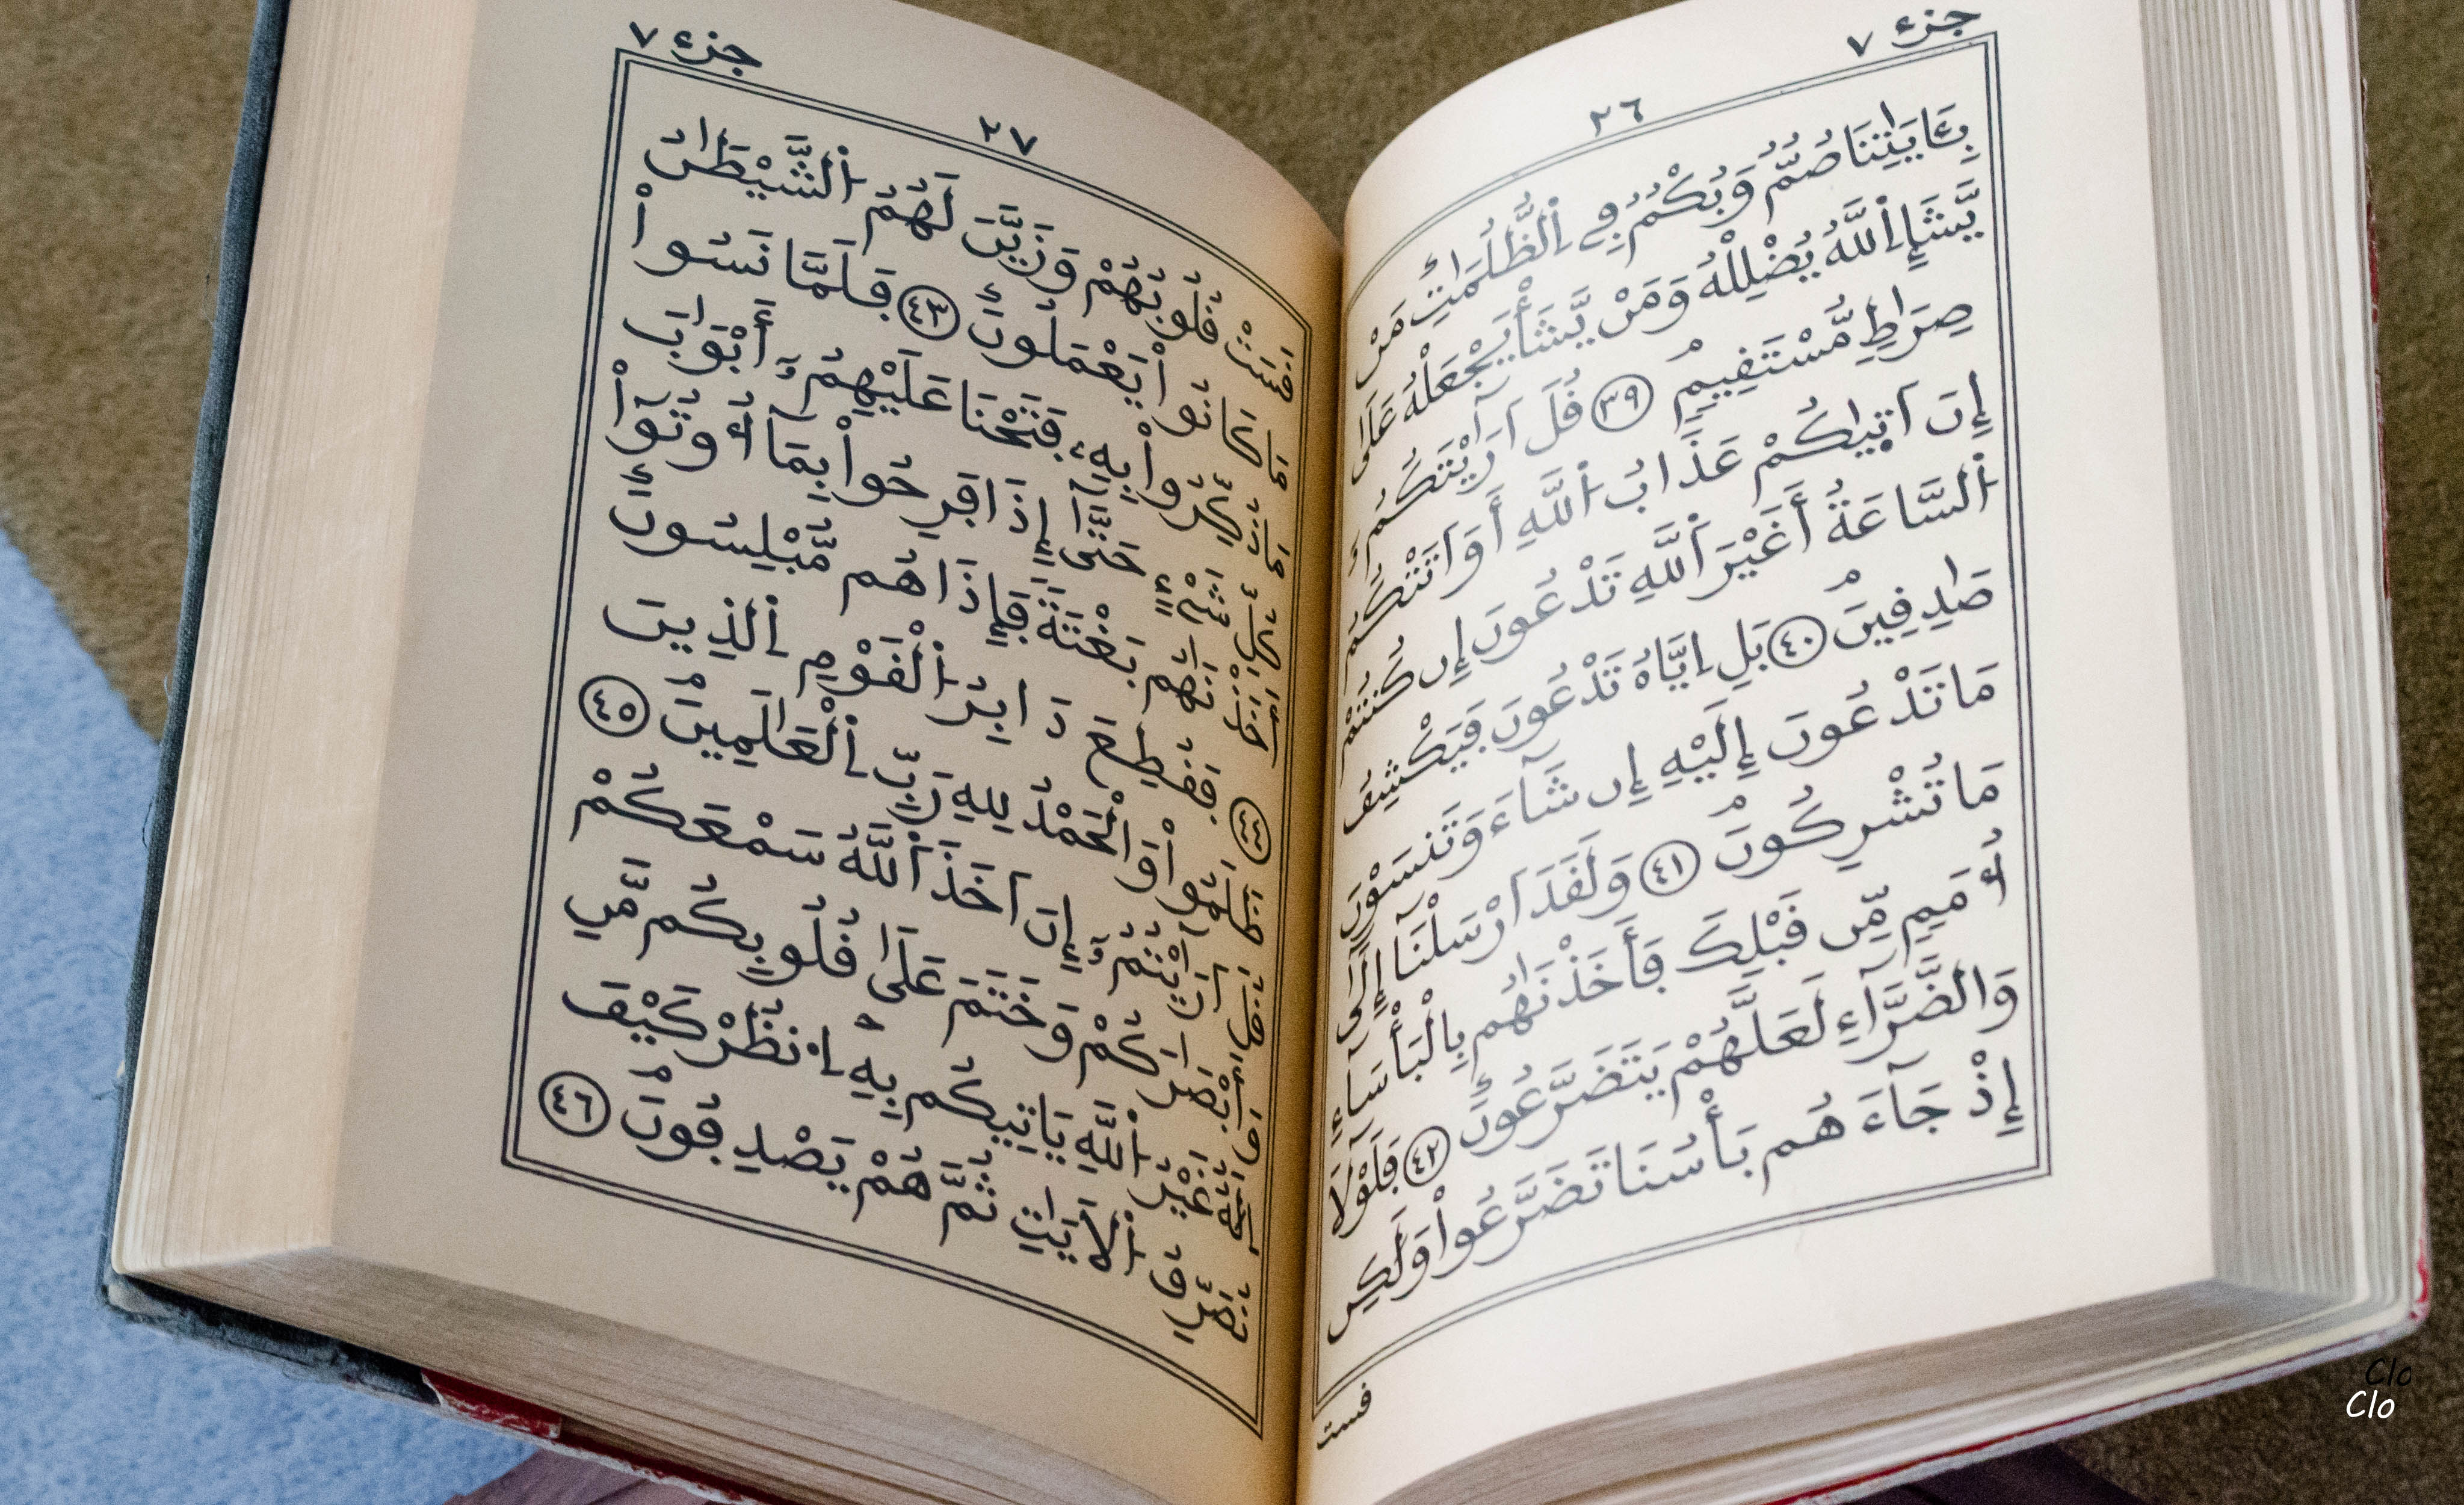 جزء ٧
٢٦
بِـَٔايَٰتِنَا صُمٌّ وَبُكْمٌ فِے اِ۬لظُّلُمَٰتِۖ مَنْ
يَّشَإِ اِ۬للَّهُ يُضْلِلْهُ وَمَنْ يَّشَأْ يَجْعَلْهُ عَلَىٰ
صِرَٰطٖ مُّسْتَقِيمٖ ٣٩ قُلَ اَرَٰيْتَكُمُۥٓ
إِنَ اَتٜيٰكُمْ عَذَابُ اُ۬للَّهِ أَوَ اَتَتْكُمُ
اُ۬لسَّاعَةُ أَغَيْرَ اَ۬للَّهِ تَدْعُونَ إِن كُنتُمْ
صَٰدِقِينَ ٤٠ بَلِ اِيَّاهُ تَدْعُونَ فَيَكْشِفُ
مَا تَدْعُونَ إِلَيْهِ إِن شَآءَ وَتَنسَوْنَ
مَا تُشْرِكُونَ ٤١ وَلَقَدَ اَرْسَلْنَآ إِلَىٰٓ
أُمَمٖ مِّن قَبْلِكَ فَأَخَذْنَٰهُم بِالْبَأْسَآءِ
وَالضَّرَّآءِ لَعَلَّهُمْ يَتَضَرَّعُونَۖ ٤٢ فَلَوْلَآ
إِذْ جَآءَهُم بَأْسُنَا تَضَرَّعُواْ وَلَٰكِن
قست
جزء ٧
٢٧
قَسَتْ قُلُوبُهُمْ وَزَيَّنَ لَهُمُ اُ۬لشَّيْطَٰنُ
مَا كَانُواْ يَعْمَلُونَۖ ٤٣ فَلَمَّا نَسُواْ
مَا ذُكِّرُواْ بِهِۦ فَتَحْنَا عَلَيْهِمُۥٓ أَبْوَٰبَ
كُلِّ شَےْءٍ حَتَّىٰٓ إِذَا فَرِحُواْ بِمَآ أُوتُوٓاْ
أَخَذْنَٰهُم بَغْتَةٗ فَإِذَا هُم مُّبْلِسُونَۖ
٤٤ فَقُطِعَ دَابِرُ اُ۬لْقَوْمِ اِ۬لذِينَ
ظَلَمُواْ وَالْحَمْدُ لِلهِ رَبِّ اِ۬لْعَٰلَمِينَ ٤٥
قُلَ اَرَٰيْتُمُۥٓ إِنَ اَخَذَ اَ۬للَّهُ سَمْعَكُمْ
وَأَبْصَٰرَكُمْ وَخَتَمَ عَلَىٰ قُلُوبِكُم مَّنِ
اِلَٰهٌ غَيْرُ اُ۬للَّهِ يَاتِيكُم بِهِۖ اِ۟نظُرْ كَيْفَ
نُصَرِّفُ اُ۬لْأٓيَٰتِ ثُمَّ هُمْ يَصْدِفُونَ ٤٦
Clo
Clo